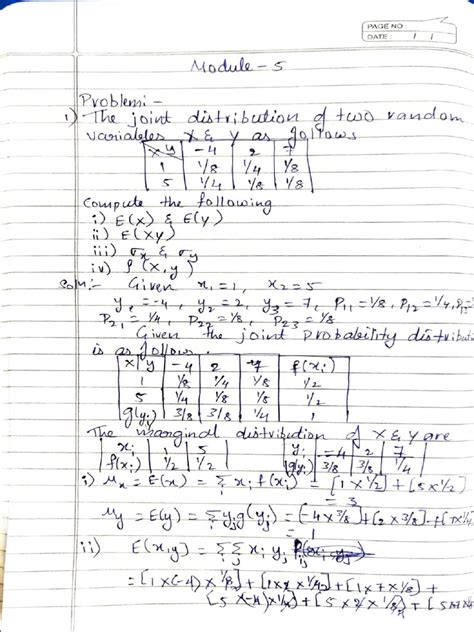 PAGE NO:
DATE: / /
Module - 5
Problem:-
1) The joint distribution of two random
variables X & Y as follows
X Y -4 2 7
1 1/8 1/4 1/8
5 1/4 1/8 1/8
Compute the following
i) E(X) & E(Y)
ii) E(XY)
iii) σx & σy
iv) ρ(x,y)
Soln:- Given x1=1, x2=5
y1=-4, y2=2, y3=7, P11=1/8, P12=1/4, P13=
P21=1/4, P22=1/8, P23=1/8
Given the joint probability distributi
is as follows.
X Y -4 2 7 f(xi)
1 1/8 1/4 1/8 1/2
5 1/4 1/8 1/8 1/2
g(yj) 3/8 3/8 1/4 1
The marginal distribution of X & Y are
xi 1 5 yj -4 2 7
f(xi) 1/2 1/2 g(yj) 3/8 3/8 1/4
i) μx = E(x) = Σi xi f(xi) = [1×1/2]+[5×1/2]
= 3
μy = E(y) = Σj yj g(yj) = [-4×3/8]+[2×3/8]+[7×1/4]
= 1
ii) E(x,y) = Σi Σj xi yj Pij
= [1×(-4)×1/8]+[1×2×1/4]+[1×7×1/8]+
[5×-4×1/4]+[5×2×1/8]+[5×7×